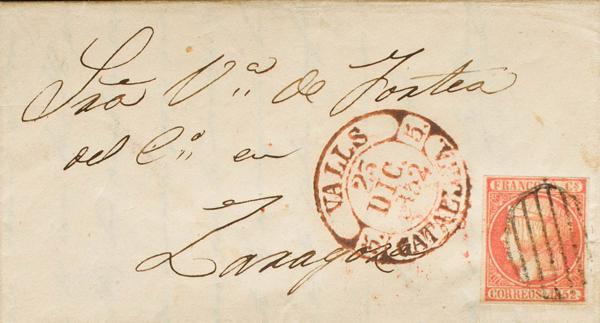 Sra V.ª de Fortea
del C.º en
Zaragoza
VALLS
5.
25
DIC
1852
CATALUÑA
FRANCO 6 Cs
CORREOS 1852